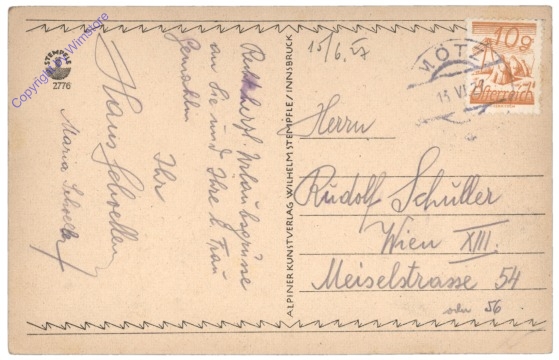 STEMPFLE
2776
Copyright by Wimstore
Recht herzl. Urlaubsgrüsse
an Sie und Ihre l. Frau
Gemahlin
Ihr
Hans Schoeller
Maria Schoeller
ALPINER KUNSTVERLAG WILHELM STEMPFLE / INNSBRUCK
15/6.27
MÖTZ
15 VI 27
10g
Österreich
Herrn
Rudolf Schuller
Wien XIII.
Meiselstrasse 54
oder 56